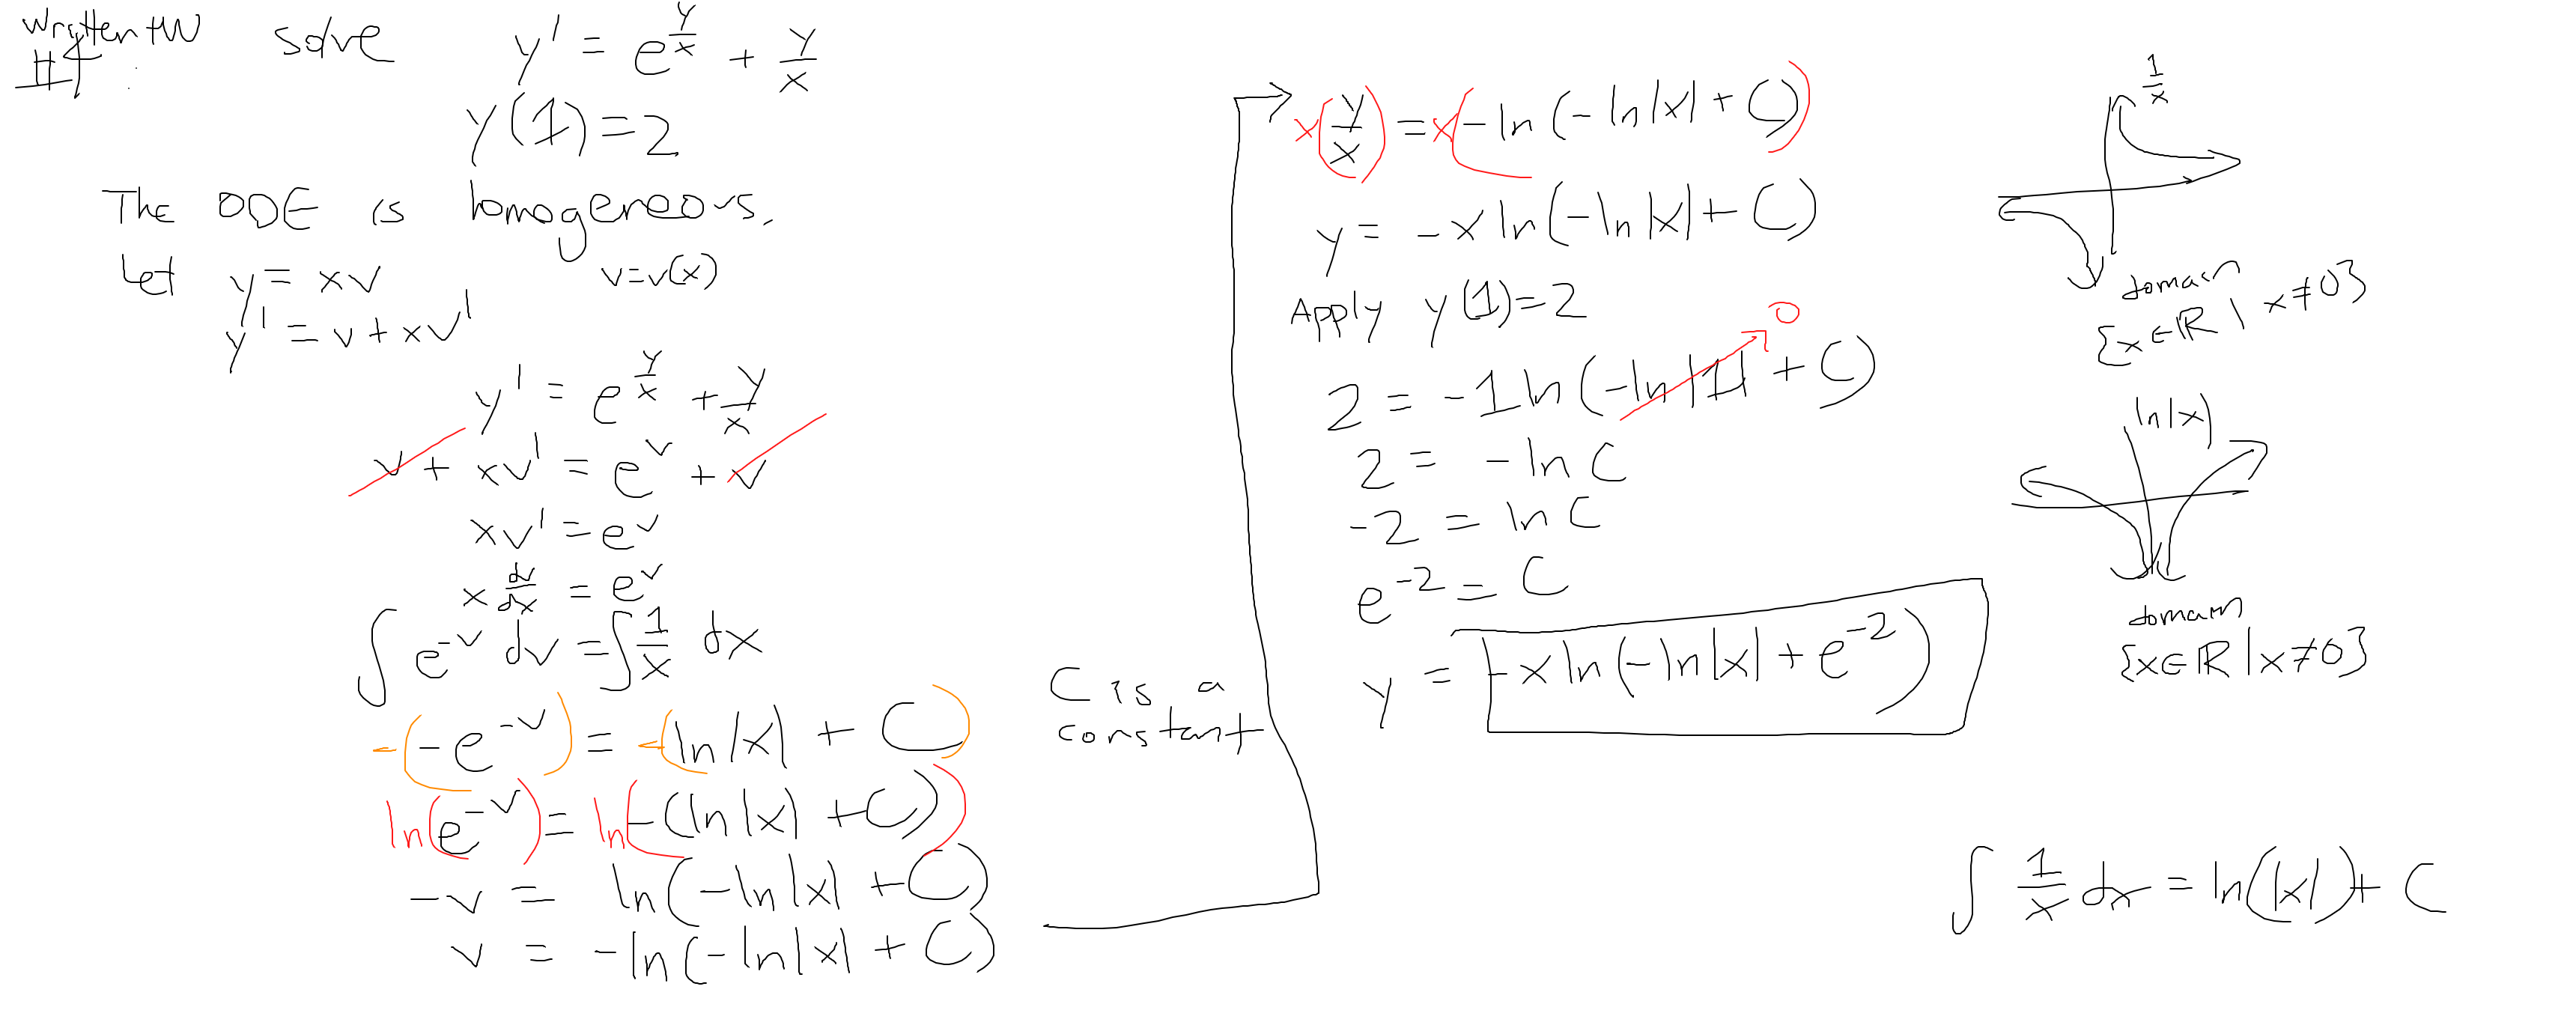 Written HW solve y' = e^(y/x) + y/x
#4 :
y(1) = 2
The ODE is homogeneous.
Let y = xv v = v(x)
y' = v + xv'
y' = e^(y/x) + y/x
v + xv' = e^v + v
xv' = e^v
x dv/dx = e^v
∫ e^(-v) dv = ∫ 1/x dx
-(-e^(-v)) = -(ln|x| + C)
ln(e^(-v)) = ln(-(ln|x| + C))
-v = ln(-ln|x| + C)
v = -ln(-ln|x| + C)
C is a
constant
x(y/x) = x(-ln(-ln|x| + C))
y = -x ln(-ln|x| + C)
Apply y(1) = 2
2 = -1 ln(-ln|1| + C) 0
2 = -ln C
-2 = ln C
e^(-2) = C
y = -x ln(-ln|x| + e^(-2))
1/x
domain
{x ∈ ℝ | x ≠ 0}
ln|x|
domain
{x ∈ ℝ | x ≠ 0}
∫ 1/x dx = ln(|x|) + C